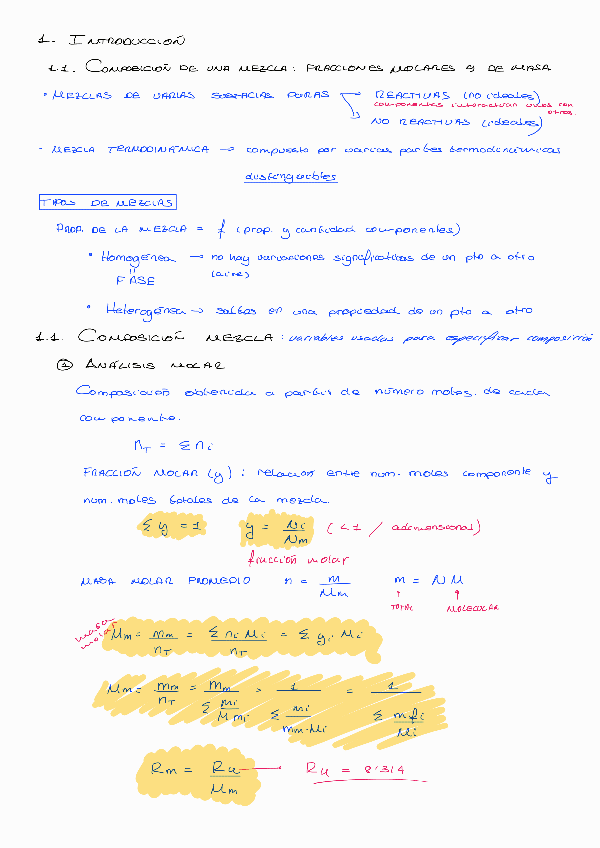 1. INTRODUCCIÓN
1.1. COMPOSICIÓN DE UNA MEZCLA: FRACCIONES MOLARES y DE MASA
• MEZCLAS DE VARIAS SUSTANCIAS PURAS → REACTIVAS (no ideales)
componentes interactuan unos con otros.
→ NO REACTIVAS (ideales)
• MEZCLA TERMODINÁMICA → compuesto por varias partes termodinámicas
distinguibles
TIPOS DE MEZCLAS
PROP. DE LA MEZCLA = f (prop. y cantidad componentes)
• Homogénea → no hay variaciones significativas de un pto a otro
(aire)
"
FASE
• Heterogénea → saltos en una propiedad de un pto a otro
1.1. COMPOSICIÓN MEZCLA: variables usadas para especificar composición
① ANÁLISIS MOLAR
Composición obtenida a partir de número moles de cada
componente.
n_T = Σ n_i
FRACCIÓN MOLAR (y): relación entre num. moles componente y
num. moles totales de la mezcla.
Σ y = 1 y = N_i / N_m (< 1 / adimensional)
fracción molar
MASA MOLAR PROMEDIO n = m / M_m m = N M
↑ TOTAL ↑ MOLECULAR
masa molar
M_m = m_m / n_T = Σ n_i M_i / n_T = Σ y_i M_i
M_m = m_m / n_T = m_m / Σ (m_i / M_mi) = 1 / Σ (m_i / m_m·M_i) = 1 / Σ (mf_i / M_i)
R_m = R_u / M_m → R_u = 8'314